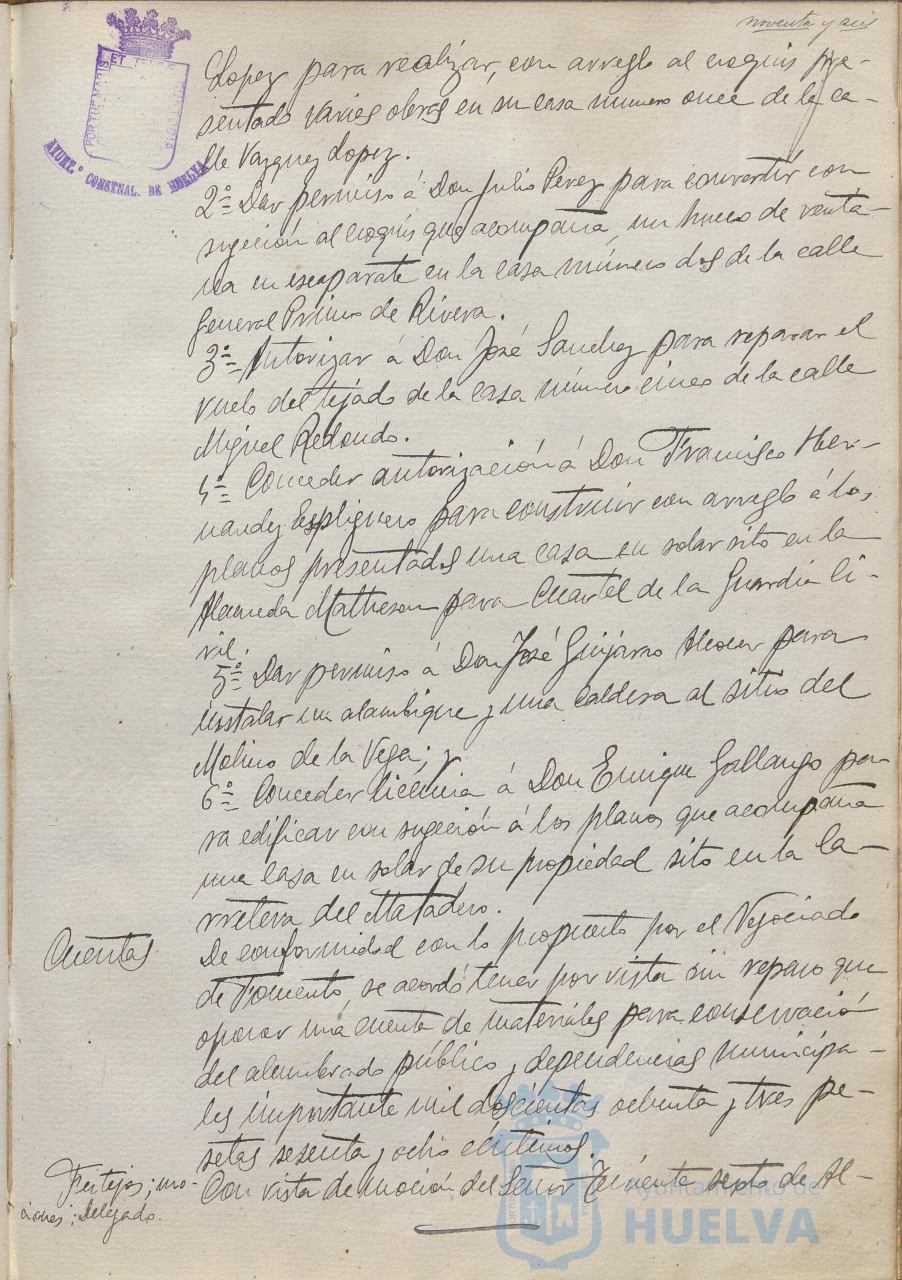 noventa y seis
PORTUS MARIS ET TERRÆ CUSTODIA
AYUNT.º CONSTNAL. DE HUELVA
Lopez para realizar, con arreglo al croquis pre-
sentado varias obras en su casa número once de la ca-
lle Vazquez Lopez.
2º= Dar permiso á Don Julio Perez para convertir con
sugeción al croquis que acompaña, un hueco de venta-
na en escaparate en la casa número dos de la calle
General Primo de Rivera.
3º= Autorizar á Don José Sanchez para reparar el
vuelo del tejado de la casa número cinco de la calle
Miguel Redondo.
4º= Conceder autorización á Don Francisco Her-
nandez Espliguero para construir con arreglo á los
planos presentados una casa en solar sito en la
Alameda Matheson para Cuartel de la Guardia Ci-
vil.
5º= Dar permiso á Don José Guijarro Alcocer para
instalar un alambique y una caldera al sitio del
Molino de la Vega; y
6º= Conceder licencia á Don Enrique Gallango pa-
ra edificar con sugeción á los planos que acompaña
una casa en solar de su propiedad sito en la Ca-
rretera del Matadero.
Cuentas
De conformidad con lo propuesto por el Negociado
de Fomento, se acordó tener por vista sin reparo que
oponer una cuenta de materiales para conservación
del alumbrado público y dependencias municipa-
les importante mil doscientas ochenta y tres pe-
setas sesenta y ocho céntimos.
Festejos; mo-
ciones; Delegado.
Con vista de moción del Señor Teniente septo de Al-
Ayuntamiento de
HUELVA